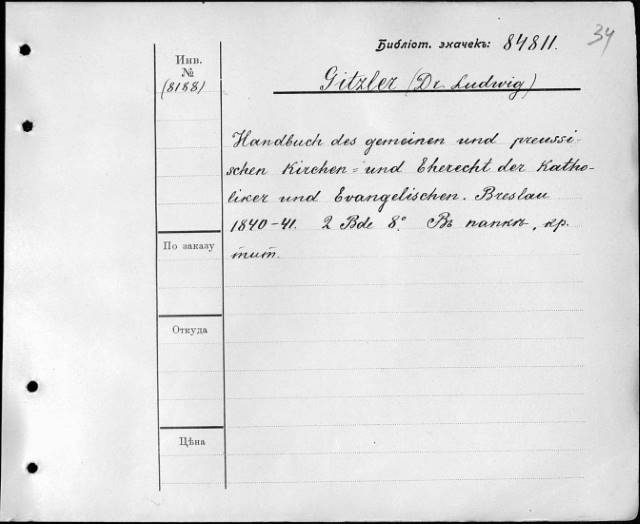 Библіот. значекъ: 84811.
34
Инв.
№
(8188)
Gitzler (Dr Ludwig)
Handbuch des gemeinen und preussi-
schen Kirchen= und Eherecht der Katho-
liker und Evangelischen. Breslau
1840-41. 2 Bde 8.° Въ папкѣ, кр.
тит.
По заказу
Откуда
Цѣна